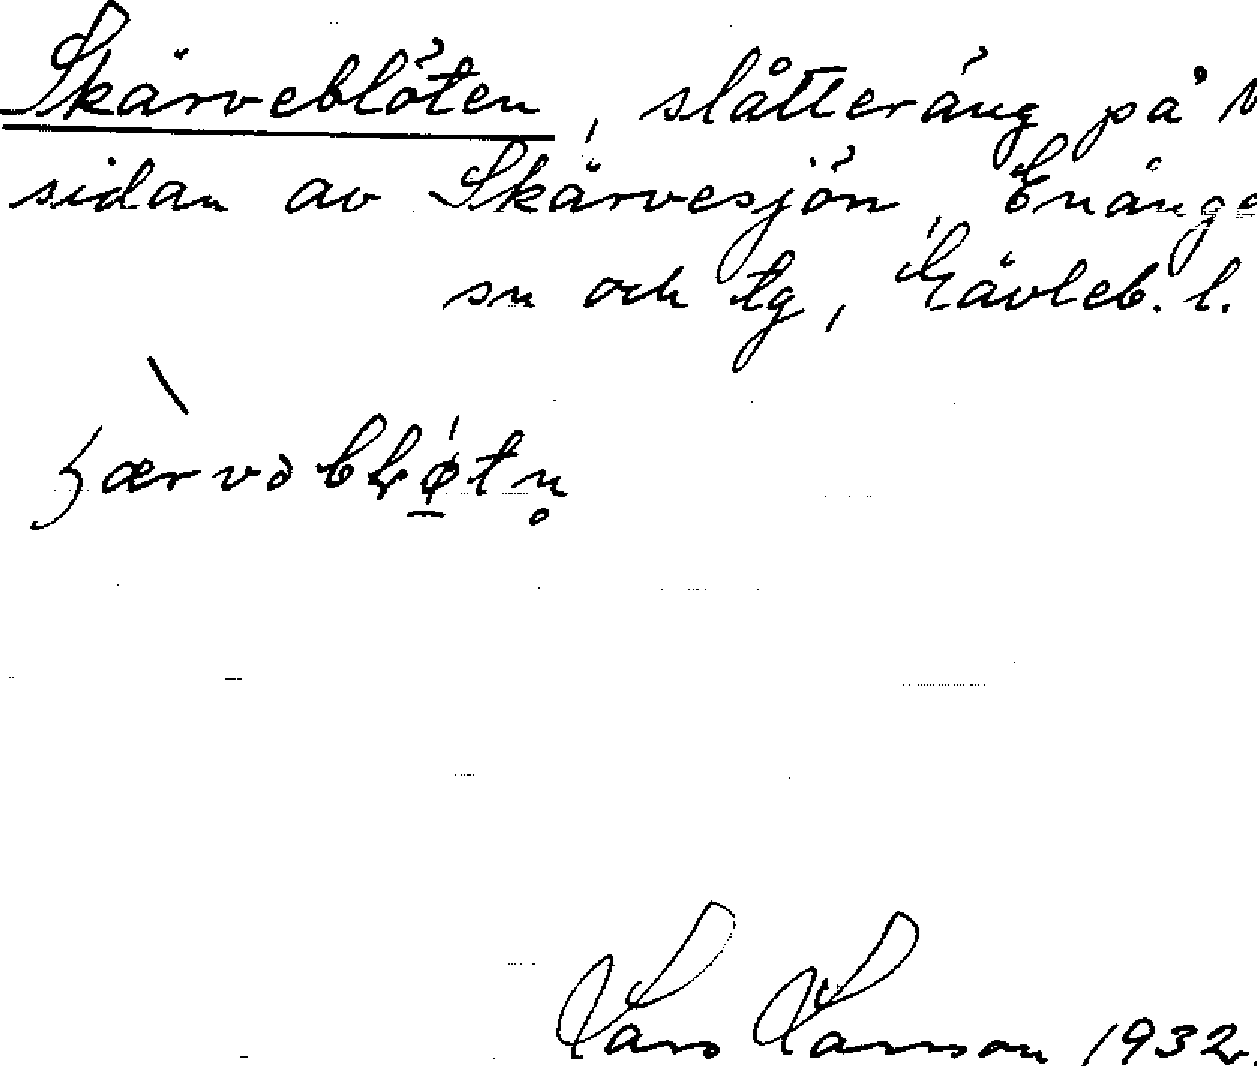 Skärveblöten, slåtteräng på
sidan av Skärvesjön, Enånge
sn och tg, Gävleb. l.
Lars Larsson 1932.